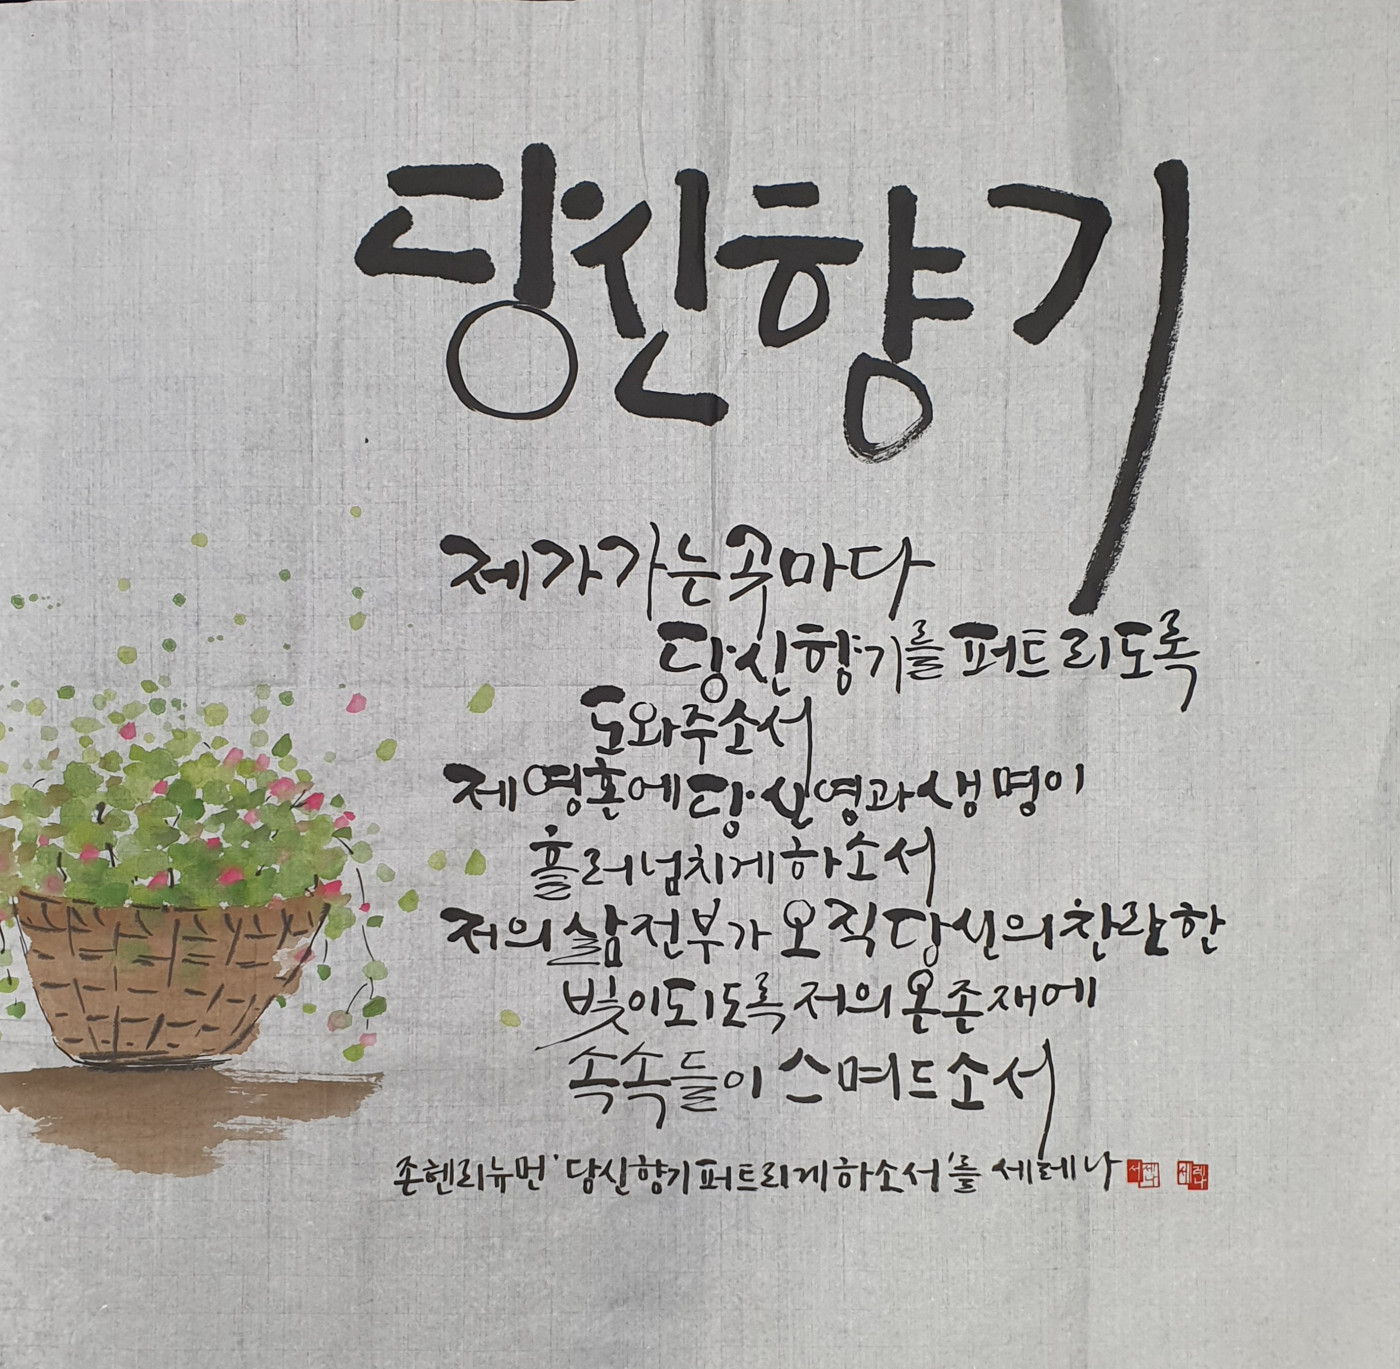 당신향기
제가 가는 곳마다
당신향기를 퍼트리도록
도와주소서
제 영혼에 당신 영과 생명이
흘러넘치게 하소서
저의 삶 전부가 오직 당신의 찬란한
빛이 되도록 저의 온 존재에
속속들이 스며드소서
존헨리뉴먼 '당신향기 퍼트리게 하소서'를 세레나